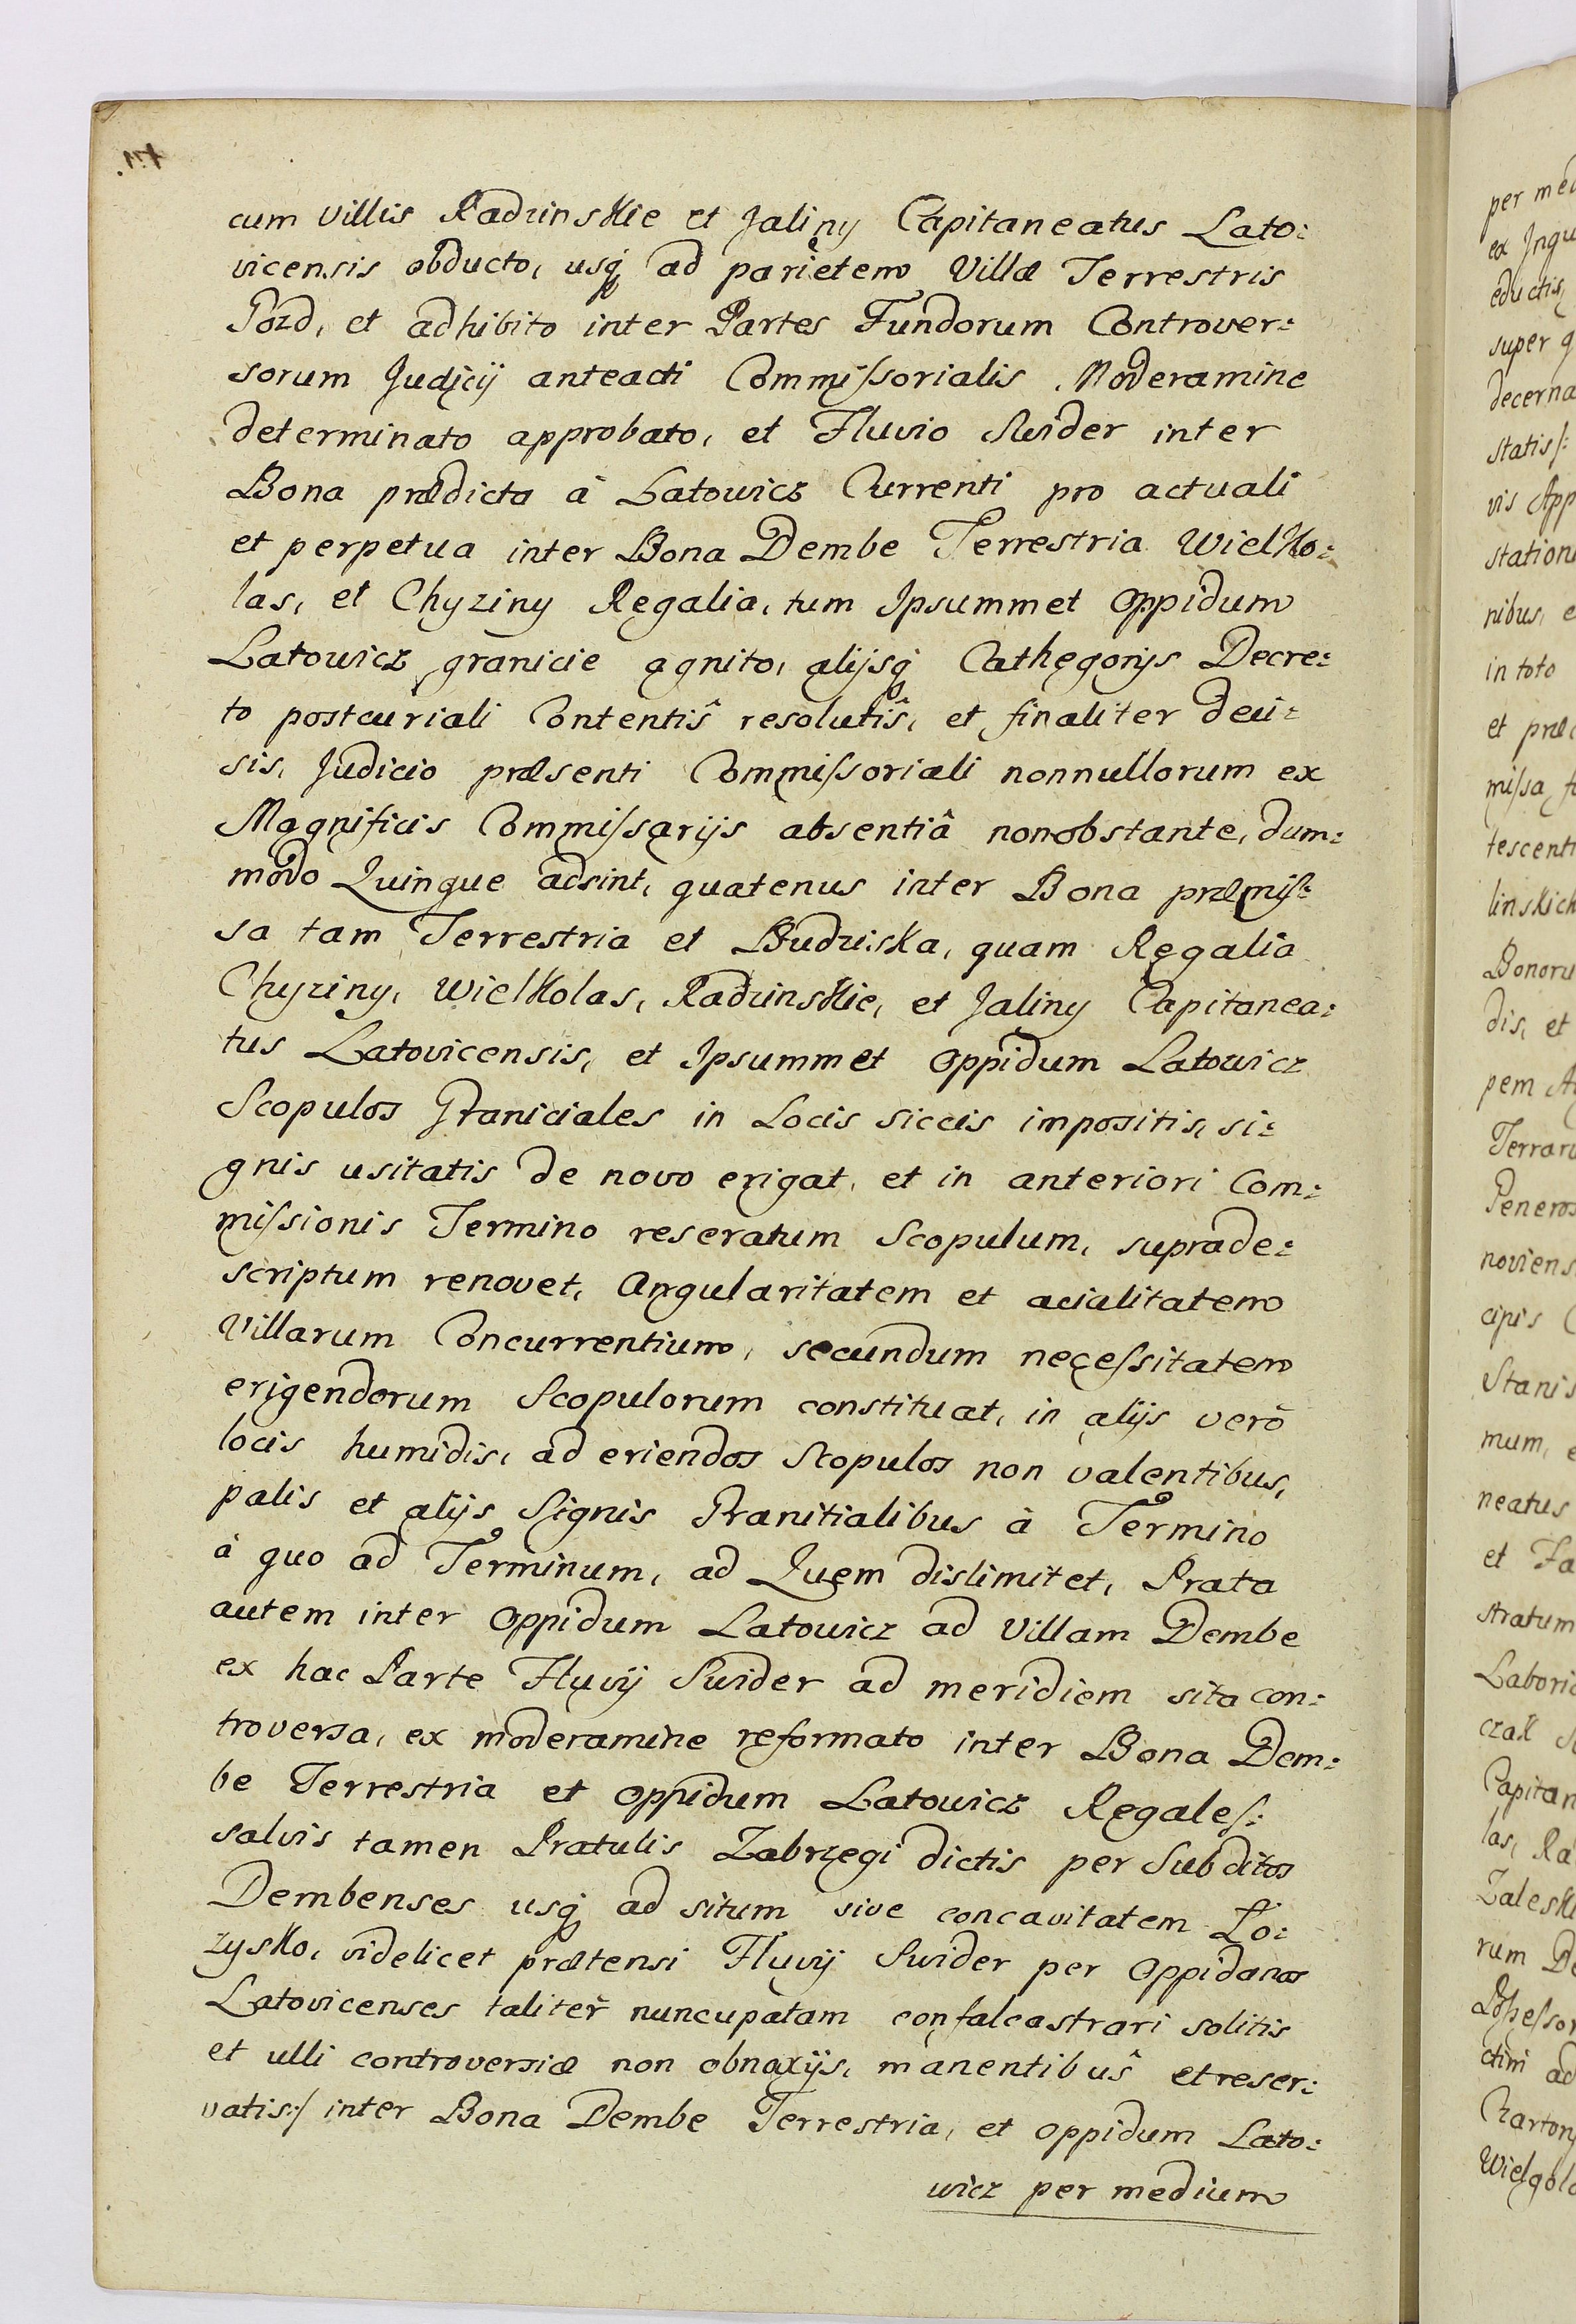 cum villis Radzinskie et Jaliny Capitaneatus Lato:
vicensis obducto, usq ad parietem Villæ Terrestris
Gozd, et adhibito inter Partes Fundorum Controver:
sorum Judicij anteacti Commissorialis Moderamine
determinato approbato, et Fluvio Swider inter
Bona prædicta à Latowicz Currenti pro actuali
et perpetua inter Bona Dembe Terrestria Wielko:
las, et Chyziny Regalia, tum Ipsummet Oppidum
Latowicz granicie agnito, alijsq Cathegorijs Decre:
to postcuriali Contentis resolutis, et finaliter deci:
sis, Judicio præsenti Commissoriali nonnullorum ex
Magnificis Commissarijs absentiâ nonobstante, dum:
modo Quinque adsint, quatenus inter Bona præmis:
sa tam Terrestria et Budziska, quam Regalia
Chyziny, Wielkolas, Radzinskie, et Jaliny Capitanea:
tus Latovicensis, et Ipsummet Oppidum Latowicz
Scopulos Graniciales in Locis siccis impositis, si:
gnis usitatis de novo erigat, et in anteriori Com:
missionis Termino reseratum Scopulum, suprade:
scriptum renovet, Angularitatem et acialitatem
Villarum Concurrentium, secundum necessitatem
erigendorum Scopulorum constituat, in alijs verò
locis humidis, ad eriendos Scopulos non valentibus,
palis et alijs Signis Granitialibus à Termino
à quo ad Terminum, ad Quem dislimitet, Prata
autem inter Oppidum Latowicz ad Villam Dembe
ex hac Parte Fluvij Swider ad meridiem sita con:
troversa, ex moderamine reformato inter Bona Dem:
be Terrestria et Oppidum Latowicz Regale/:
salvis tamen Pratulis Zabrzegi dictis per Subditos
Dembenses usq ad situm sive concavitatem Ło:
zysko, videlicet prætensi Fluvij Swider per Oppidanos
Latovicenses taliter nuncupatam confalcastrari solitis
et ulli controversiæ non obnoxijs, manentibus et reser:
vatis:/ inter Bona Dembe Terrestria, et Oppidum Lato:
wicz per medium
per med
ex Inqu
eductis
super q
decerna
statis/:
vis App
station
nibus, e
in toto
et præ
missa
tescent
linskich
Bonoru
dis, et
pem A
Terraru
Generos
noviens
cipis C
Stanis
mum, e
neatus
et Fa
stratum
Laboric
czak
Capitan
las, Ra
Zaleski
rum De
Possessor
ctim ad
Czartory
Wielgola